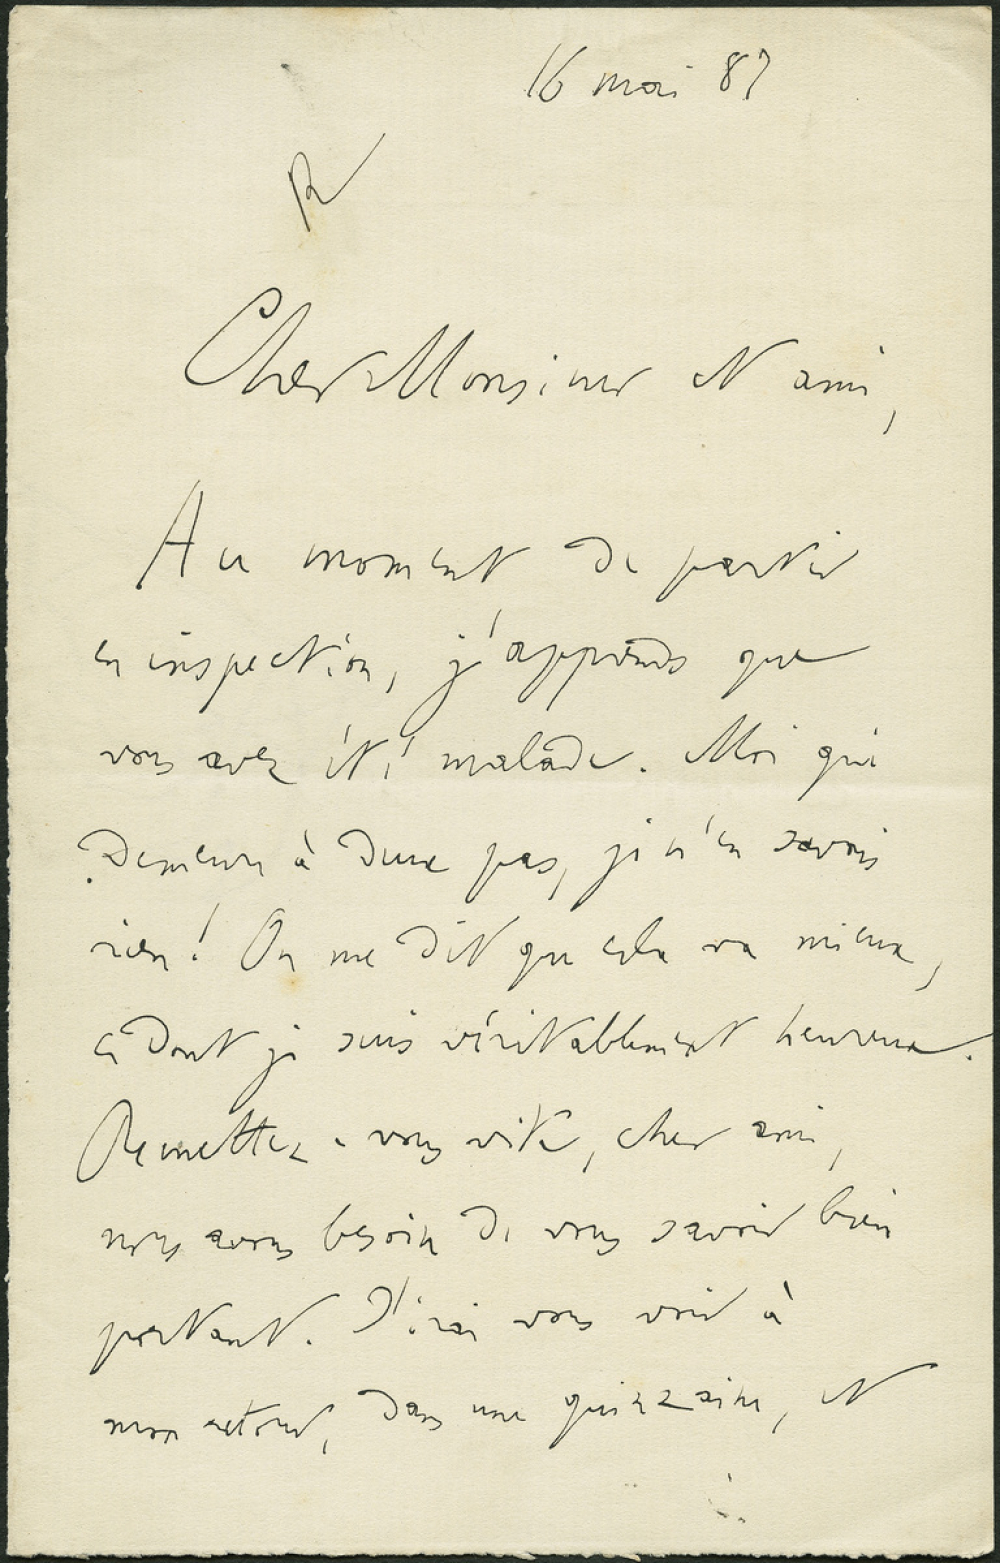 16 mai 87
R
Cher Monsieur et ami,
Au moment de partir
en inspection, j'apprends que
vous avez été malade. Moi qui
demeure à deux pas, je n'en savais
rien ! On me dit que cela va mieux,
ce dont je suis véritablement heureux.
Remettez-vous vite, cher ami,
nous avons besoin de vous savoir bien
portant. J'irai vous voir à
mon retour, dans une quinzaine, et